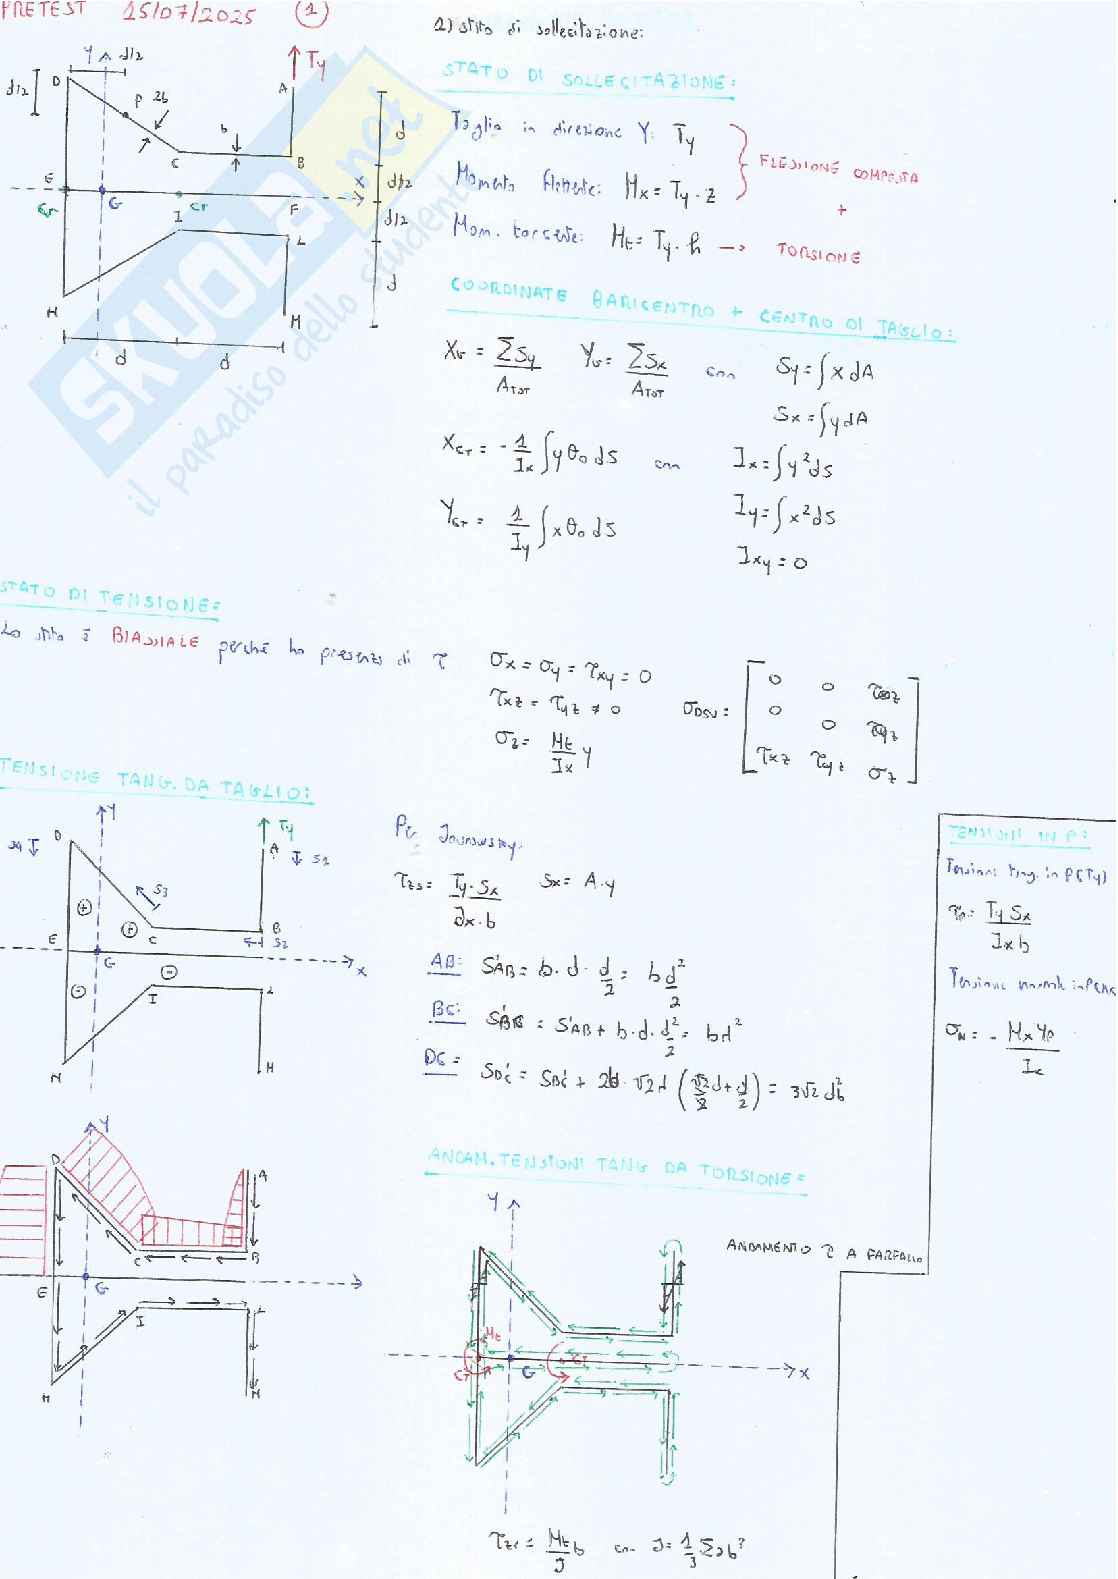 PRETEST 15/07/2025 (1)
1) stato di sollecitazione:
STATO DI SOLLECITAZIONE:
Taglio in direzione Y: Ty
Momento flettente: Mx = Ty · z
FLESSIONE COMPOSTA
+
Mom. torcente: Mt = Ty · h → TORSIONE
Y d/2 Ty
d/2 D P 2b A
b d
C B
E X d/2
CT G CT F
I L d/2
H M d
d d
COORDINATE BARICENTRO + CENTRO DI TAGLIO:
XG = ΣSy / ATOT YG = ΣSx / ATOT con Sy = ∫x dA
Sx = ∫y dA
XCT = - 1/Ix ∫y θ0 ds con Ix = ∫y² ds
YCT = 1/Iy ∫x θ0 ds Iy = ∫x² ds
Ixy = 0
STATO DI TENSIONE:
Lo stato è BIASSIALE perché ho presenza di τ
σx = σy = τxy = 0
τxz = τyz ≠ 0
σz = Mt/Ix y
σDSV =
0 0 τxz
0 0 τyz
τxz τyz σz
TENSIONE TANG. DA TAGLIO:
Y Ty
D S4 A S1
S3
C B
S2
E G X
I L
H M
Per Jourawsky:
τzs = Ty · Sx / Jx · b Sx = A · y
AB: S'AB = b · d · d/2 = b d²/2
BC: S'BC = S'AB + b · d · d²/2 = bd²
DC = SDC' = SBC' + 2b · √2d (√2/2 d + d/2) = 3√2 d²b
TENSIONI IN P:
Tensione tang. in P (Ty)
τP = Ty Sx / Ix b
Tensione normale in P
- Mx YP
Y
D A
C B
E G
I L
H M
ANDAM. TENSIONI TANG DA TORSIONE =
ANDAMENTO τ A FARFALLA
Y
Mt
CT G CT X
Mt/J b con J = 1/3 Σab³